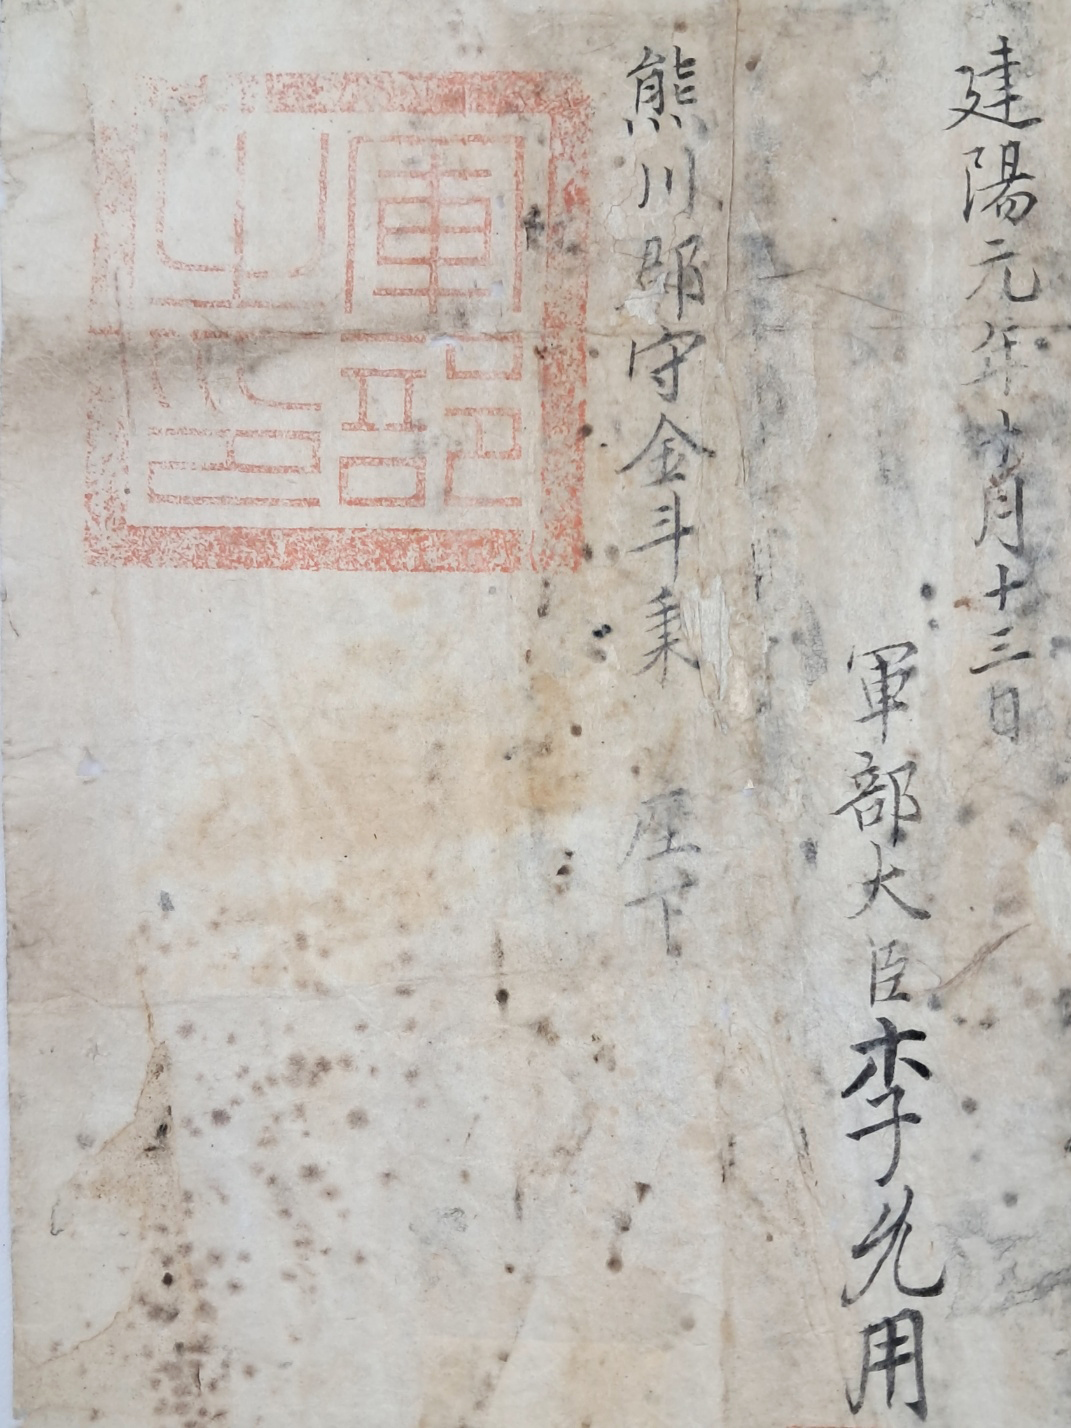 建陽元年十月十三日
軍部大臣李允用
熊川郡守金斗秉 座下
軍部
之印